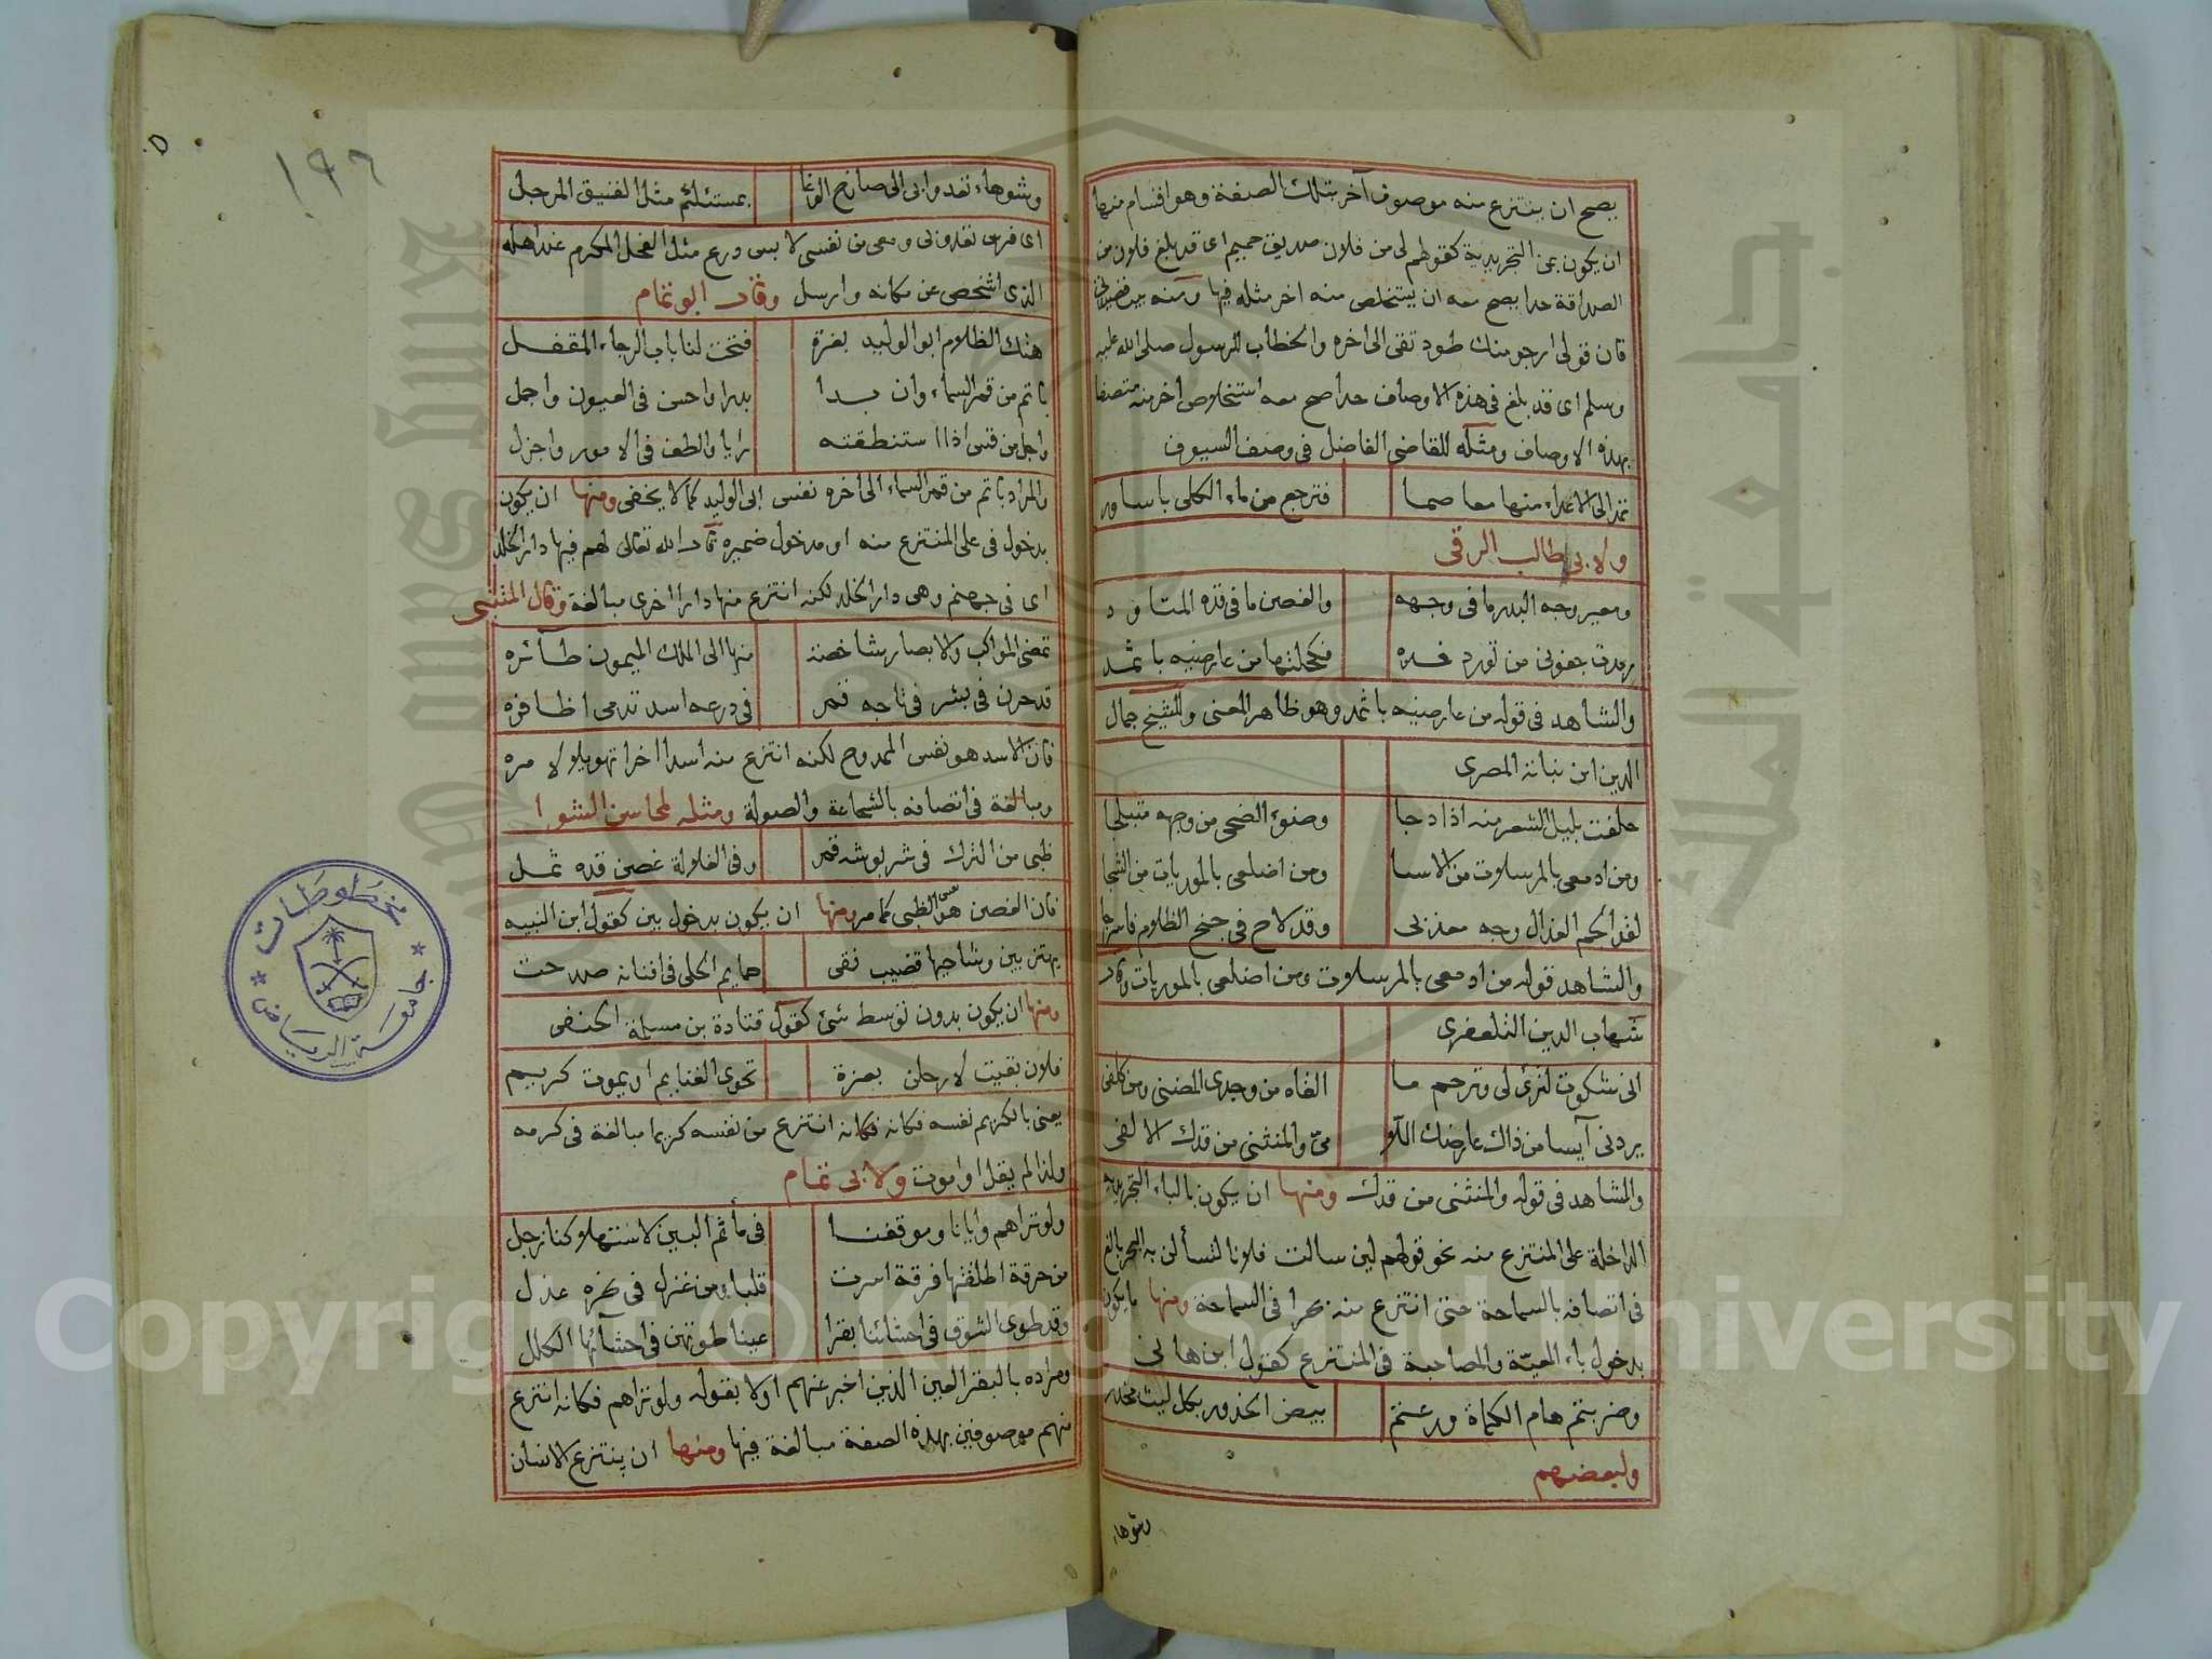 يصح ان ينتزع منه موصوف آخر بتلك الصفة وهو اقسام منها
ان يكون بمن التجريدية كقولهم لى من فلان صديق حميم اى قد بلغ فلان من
الصداقة حدا يصح معه ان يستخلص منه اخر مثله فيها ومنه بيت
فان قولى ارجو منك طود تقى الى اخره والخطاب للرسول صلى الله عليه
وسلم اى قد بلغ فى هذه الاوصاف حدا صح معه استخلاص اخر منه متصفا
بهذه الاوصاف ومثله للقاضى الفاضل فى وصف السيوف
تمد الى الاعداء منها معاصما فترجع من ماء الكلى باساور
ولابى طالب الرقى
ومعير وجه البدر ما فى وجهه والغصن ما فى قده المتاود
رمدت جفونى من تورد خده فكحلتها من عارضيه باثمد
والشاهد فى قوله من عارضيه باثمد وهو ظاهر المعنى وللشيخ جمال
الدين ابن نباتة المصرى
حلفت بليل الشعر منه اذا دجا وضوء الضحى من وجهه متبلجا
ومن ادمعى بالمرسلات من الاسا ومن اضلعى بالموريات من الشجا
لفداكم العذال وجه معذبى وقد لاح فى جنح الظلام فاسرجا
والشاهد قوله من ادمعى بالمرسلات ومن اضلعى بالموريات وقال
شهاب الدين التلعفرى
انى شكوت لترثى لى وترحم ما القاه من وجدى المضنى ومن كلفى
يردنى آيسا من ذاك عارضك اللا مى والمنثنى من قدك الالفى
والشاهد فى قوله والمنثنى من قدك ومنها ان يكون بالباء التجريدية
الداخلة على المنتزع منه نحو قولهم لئن سالت فلانا لتسألن به البحر بالغ
فى اتصافه بالسماحة حتى انتزع منه بحرا فى السماحة ومنها ما يكون
بدخول باء المعية والمصاحبة فى المنتزع كقول ابن هانى
وضربتم هام الكماة ورعتم بيض الخدور بكل ليث مخدر
ولبعضهم
وشوهاء
١٩٦
وشوهاء تعدوا بى الى صارخ الوغا بمستلئم مثل الفنيق المرحل
اى فرس تعدو بى ومعى من نفسى لابس درع مثل الفحل المكرم عند اهله
الذى اشخص عن مكانه وارسل وقال ابو تمام
هتك الظلام ابو الوليد بغرة فتحت لنا باب الرجاء المقفل
باتم من قمر السماء وان بدا بدرا واحسن فى العيون واجمل
واجل من قس اذا استنطقته رايا والطف فى الامور واجزل
والمراد باتم من قمر السماء الى اخره نفس ابى الوليد كما لا يخفى ومنها ان يكون
بدخول فى على المنتزع منه او مدخول ضميره قال الله تعالى لهم فيها دار الخلد
اى فى جهنم وهى دار الخلد لكنه انتزع منها دارا اخرى مبالغة وقال المتنبى
تمضى المواكب والابصار شاخصة منها الى الملك الميمون طائره
قد حرن فى بشر فى تاجه قمر فى درعه اسد تدمى اظافره
فان الاسد هو نفس الممدوح لكنه انتزع منه اسدا اخرا تهويلا لامره
ومبالغة فى اتصافه بالشجاعة والصولة ومثله لمحاسن الشوا
ظبى من الترك فى شربوشه قمر وفى الغلالة غصن قده ثمل
فان الغصن هو نفس الظبى كما مر ومنها ان يكون بدخول بين كقول ابن النبيه
يهتز بين وشاحيها قضيب نقى حمايم الحلى فى افنانه صدحت
ومنها ان يكون بدون توسط شئ كقول قتادة بن مسلمة الحنفى
فلان بقيت لارحلن بغزة تحوى الغنايم او يموت كريم
يعنى بالكريم نفسه فكانه فكانه انتزع من نفسه كريما مبالغة فى كرمه
ولذا لم يقل او اموت ولابى تمام
ولو تراهم وايانا وموقفنا فى مأثم البين لاستهلاكنا زجل
من حرقة اطلقتها فرقة اسرت قلبا ومن غزل فى نحره عذل
وقد طوى الشوق فى احشائنا بقرا عينا طوتهن فى احشآئها الكلل
ومراده بالبقر العين الذين اخبر عنهم اولا بقوله ولو تراهم فكانه انتزع
منهم موصوفين بهذه الصفة مبالغة فيها ومنها ان ينتزع الانسان
مخطوطات
جامعة الرياض
جامعة الملك
King Saud
Copyright © King Saud University